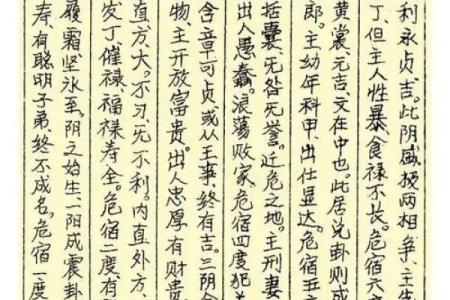 利永贞吉。此阴盛,梗两相争、主生
丁,但主人性暴,食禄不长。危宿六
黄裳,元吉,文在中也。此居兑卦则成
郎。主幼年科甲、出仕显达。危宿五
括囊,无咎无誉。近危之地。主刑妻
出人愚蠢。浪荡败家。危宿四度犯
含章可贞或从王事,终有吉。三阴
物,主开放富贵。出人忠厚有财贵
直方大。不习,无不利。内直外方、
发丁催禄,福禄寿全。危宿二度,有
履霜坚冰至。阴之始生一阳成震卦
寿,有聪明子弟,终不成名。危宿一度